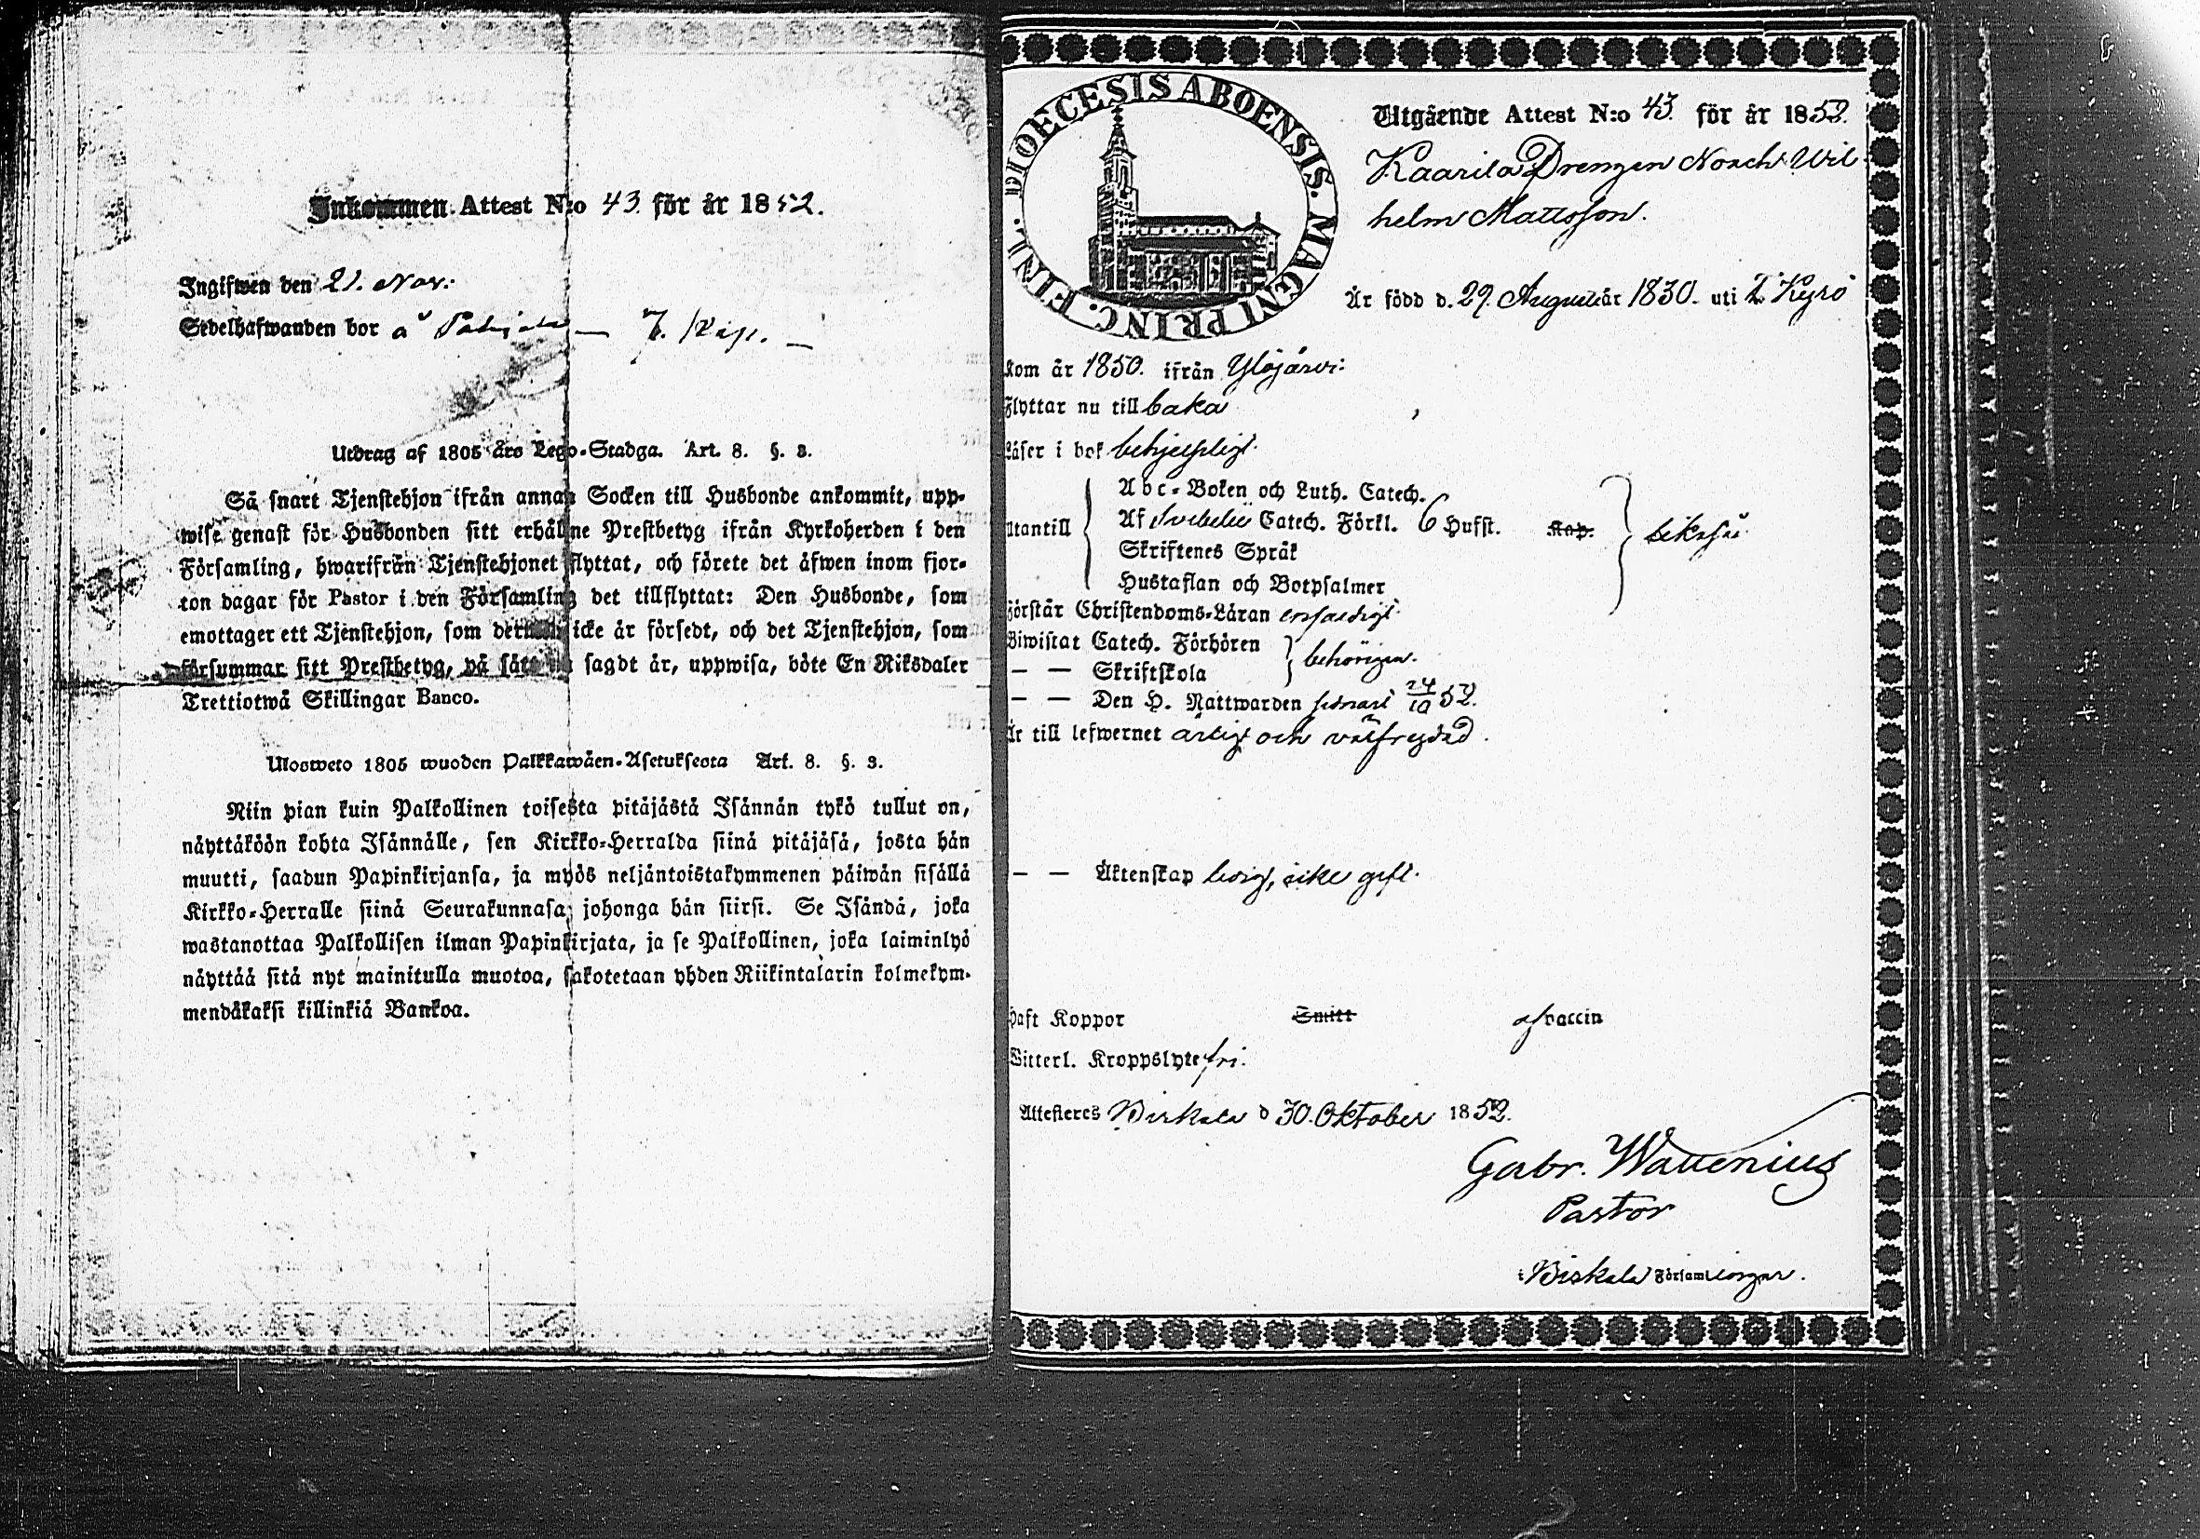 Inkommen Attest N:o 43. för år 1852.
Ingifwen den 21. Nov:
Sedelhafwanden bor å
Utdrag af 1805 års Lego-Stadga. Art. 8. §. 3.
Så snart Tjenstehjon ifrån annan Socken till Husbonde ankommit, upp-
wise genast för Husbonden sitt erhållne Prestbetyg ifrån Kyrkoherden i den
Församling, hwarifrån Tjenstehjonet flyttat, och förete det åfwen inom fjor-
ton dagar för Pastor i den Församling det tillflyttat: Den Husbonde, som
emottager ett Tjenstehjon, som dermed icke år försedt, och det Tjenstehjon, som
försummar sitt Prestbetyg, på sätt nu sagdt år, uppwisa, böte En Riksdaler
Trettiotwå Skillingar Banco.
Ulosweto 1805 wuoden Palkkawäen-Asetuksesta Art. 8. §. 3.
Niin pian kuin Palkollinen toisesta pitäjästä Isännän tykö tullut on,
näyttäköön kohta Isännälle, sen Kirkko-Herralda siinä pitäjäsä, josta hän
muutti, saadun Papinkirjansa, ja myös neljäntoistakymmenen päiwän sisällä
Kirkko-Herralle siinä Seurakunnasa, johonga hän siirsi. Se Isändä, joka
wastanottaa Palkollisen ilman Papinkirjata, ja se Palkollinen, joka laiminlyö
näyttää sitä nyt mainitulla muotoa, sakotetaan yhden Riikintalarin kolmekym-
mendäkaksi killinkiä Bankoa.
DIOECESIS ABOENSIS. MAGNI PRINC. FINL.
Utgående Attest N:o 43. för år 1852.
Kaarila Drengen Noach Wil-
helm Mattsson.
Är född d. 29. Augusti år 1830. uti T. Kyrö
Kom år 1850. ifrån Ylöjärvi
Flyttar nu till baka
Läser i bok behjelpligt.
Utantill
Abc-Boken och Luth. Catech.
Af Svebelii Catech. Förkl. 6 Hufst. Kap.
Skriftenes Språk
Hustaflan och Botpsalmer
likaså
Förstår Christendoms-Läran enfaldigt
Biwistat Catech. Förhören
— — Skriftskola
behörigen.
— — Den H. Nattwarden senast 24/10 52.
Är till lefwernet ärlig och välfrejdad.
— — Äktenskap ledig, icke gift.
Haft Koppor Smitt af vaccin
Witterl. Kroppslyte fri.
Attesteres Birkala d 30. Oktober 1852.
Gabr. Wallenius
Pastor
i Birkala Församlingar.